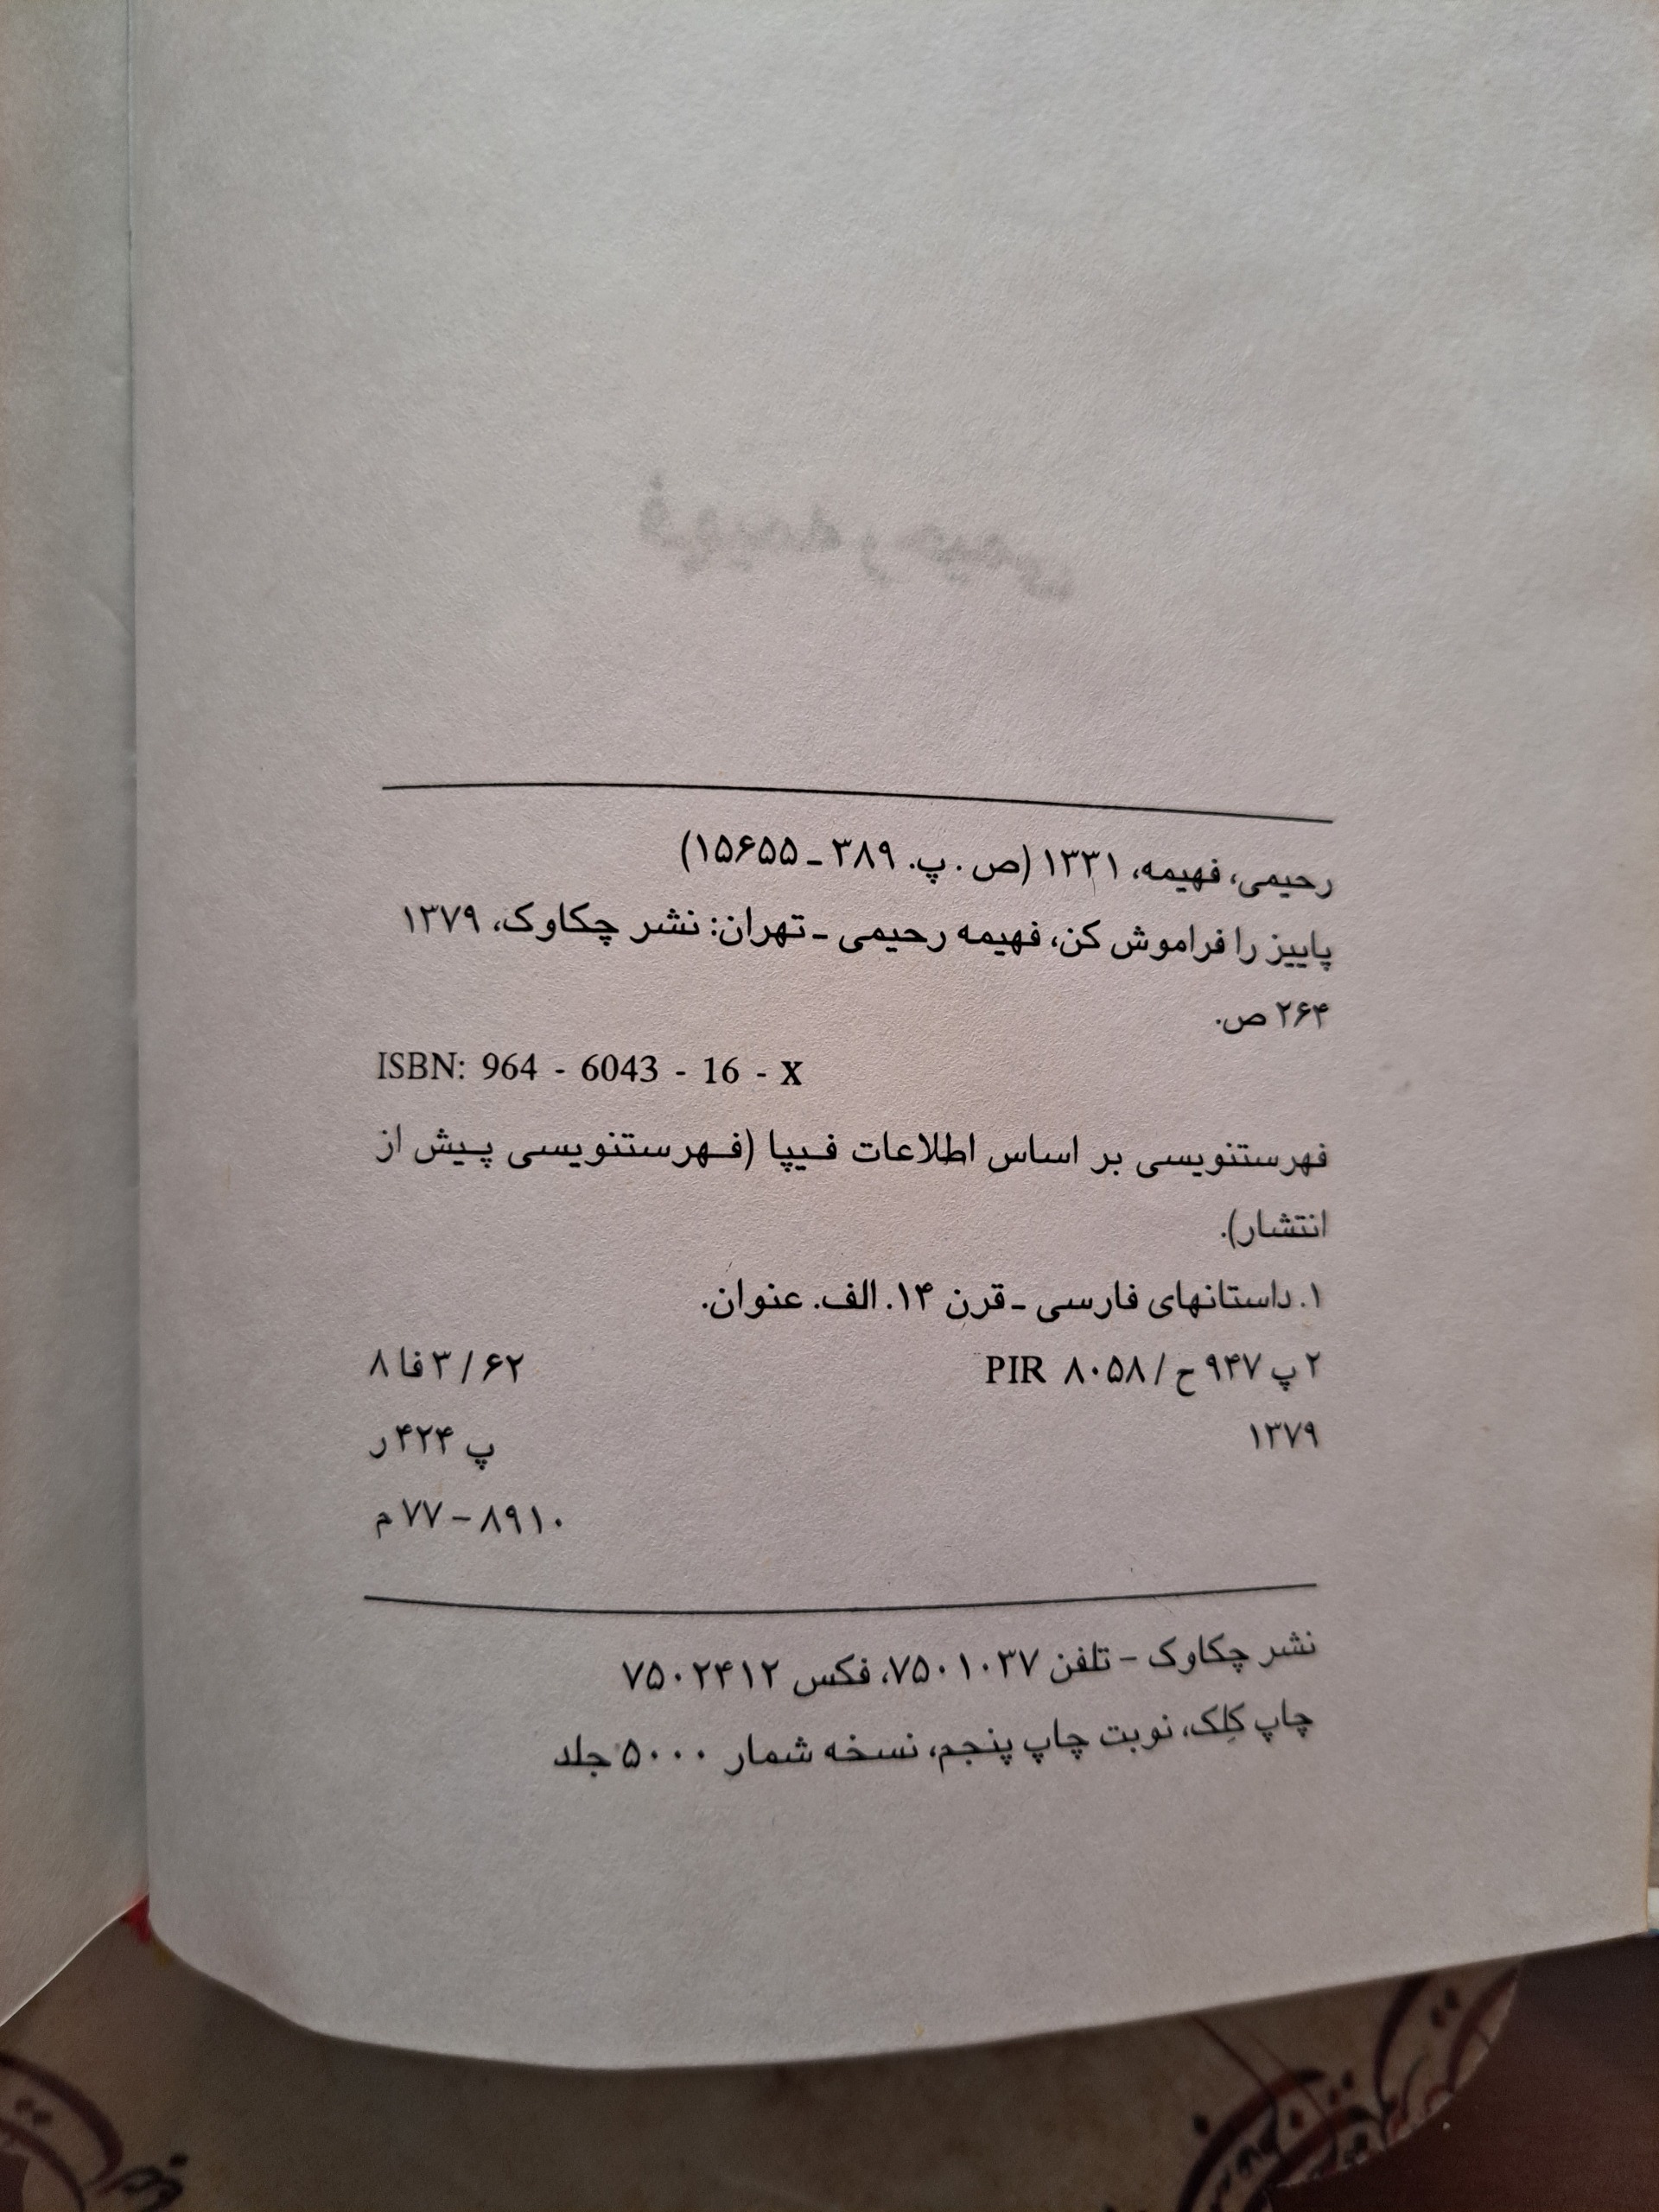 رحیمی، فهیمه، ۱۳۳۱ (ص . پ. ۳۸۹ ـ ۱۵۶۵۵)
پاییز را فراموش کن، فهیمه رحیمی ـ تهران: نشر چکاوک، ۱۳۷۹
۲۶۴ ص.
ISBN: 964 - 6043 - 16 - X
فهرستنویسی بر اساس اطلاعات فیپا (فهرستنویسی پیش از
انتشار).
۱. داستانهای فارسی ـ قرن ۱۴. الف. عنوان.
۲ پ ۹۴۷ ح / ۸۰۵۸ PIR ۸ فا ۳ / ۶۲
۱۳۷۹ پ ۴۲۴ ر
م ۷۷ – ۸۹۱۰
نشر چکاوک – تلفن ۷۵۰۱۰۳۷، فکس ۷۵۰۲۴۱۲
چاپ کِلک، نوبت چاپ پنجم، نسخه شمار ۵۰۰۰ جلد